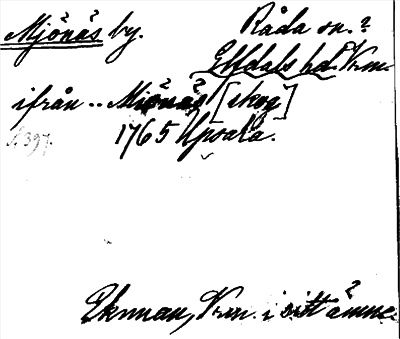 Mjönäs by. Råda sn.?
Elfdals hd. Vrm.
ifrån .. Miönäs [skog]
S. 397. 1765 Upsala.
Ekman, Vrm. i sitt ämne.